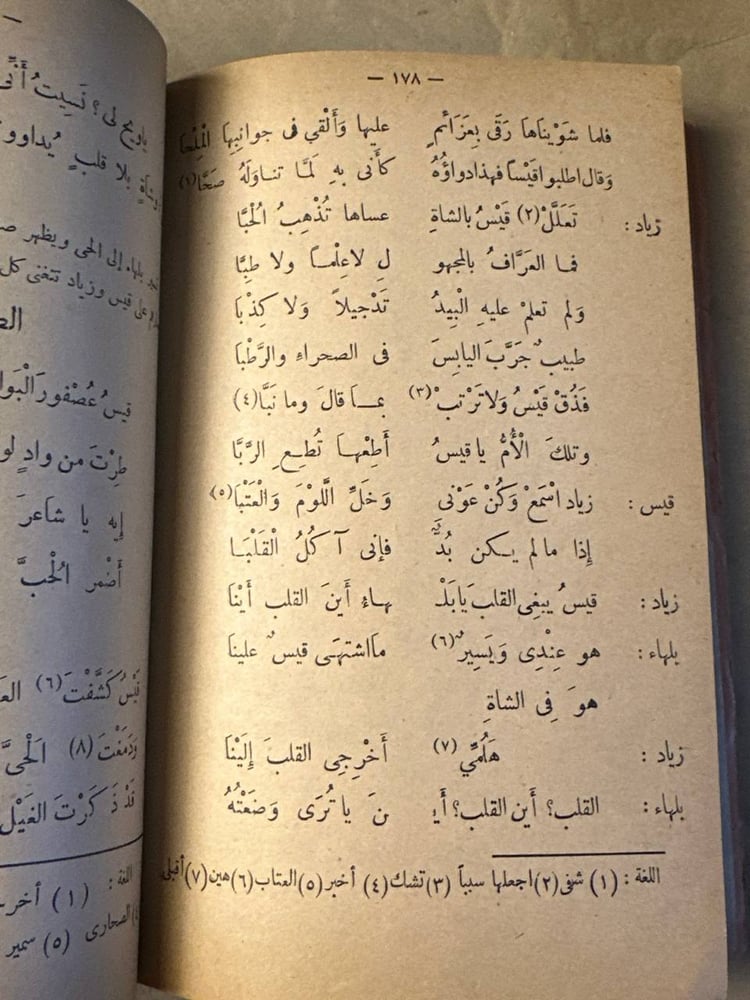 — ١٧٨ —
فلما شَوَيْناهَا رَقَى بِعَزَائمٍ عليها وَأَلْقي فى جوانِبِهَا الْمِلْحَا
وَقال اطلبوا قَيْساً فهذا دواؤُهُ كأنى بهِ لَمَّا تناولَهُ صَحَّا(١)
زياد : تَعَلَّلْ(٢) قَيْسُ بالشاةِ عساها تُذْهِبُ الْحُبَّا
فما العَرَّافُ بالمجهو لِ لاعِلْماً ولا طِبَّا
وَلم تعلمْ عليهِ الْبِيدُ تَدْجيلاً وَلا كِذْبَا
طبيبٌ جَرَّبَ اليابِسَ فى الصحراء والرَّطْبَا
فَذُقْ قَيْسُ وَلاتَرْتبْ(٣) بما قالَ وما نَبَّا(٤)
وتلكَ الْأُمُّ يا قيسُ أَطِعْها تُطِعِ الرَّبَّا
قيس : زياد اسْمَعْ وَكُنْ عَوْنى وَخَلِّ اللَّوْمَ وَالْعَتْبَا(٥)
إذا مالم يكن بُدٌّ فإنى آكُلُ الْقَلْبَا
زياد : قيسُ يبغِى القلبَ يَابَلْـ ـهاءِ أَينَ القلب أَيْنَا
بلهاء : هو عِنْدِى وَيَسِيرٌ(٦) مااشتهَى قيسٌ علينا
هوَ فِى الشاةِ
زياد : هَلُمِّي(٧) أَخْرِجِى القلبَ إِلَيْنَا
بلهاء : القلب؟ أين القلب؟ أَيْـ ـنَ يا تُرَى وَضَعْتُهُ
اللغة : (١) شفى (٢) اجعلها سبباً (٣) تشك (٤) أخبر (٥) العتاب (٦) هين (٧) أقبلى
ياويحَ لى؟ نَسِيتُ أَنِّى
بلا قلبٍ يُداوو
إلى الحى ويظهر
على قيس وزياد تتغنى كل
قيسُ عُصْفورَ الْبَوا
طِرْتَ من وادٍ لو
إيه يا شاعرَ
أَضْمر الْحُبَّ
قَيْسُ كَشَّفْتَ(٦) الع
وَدَمَغْتَ (٨) الْحَىَّ
قَدْ ذَكَرْتَ الغَيْلَ
اللغة : (١) أخر
الصحارى (٥) سمير